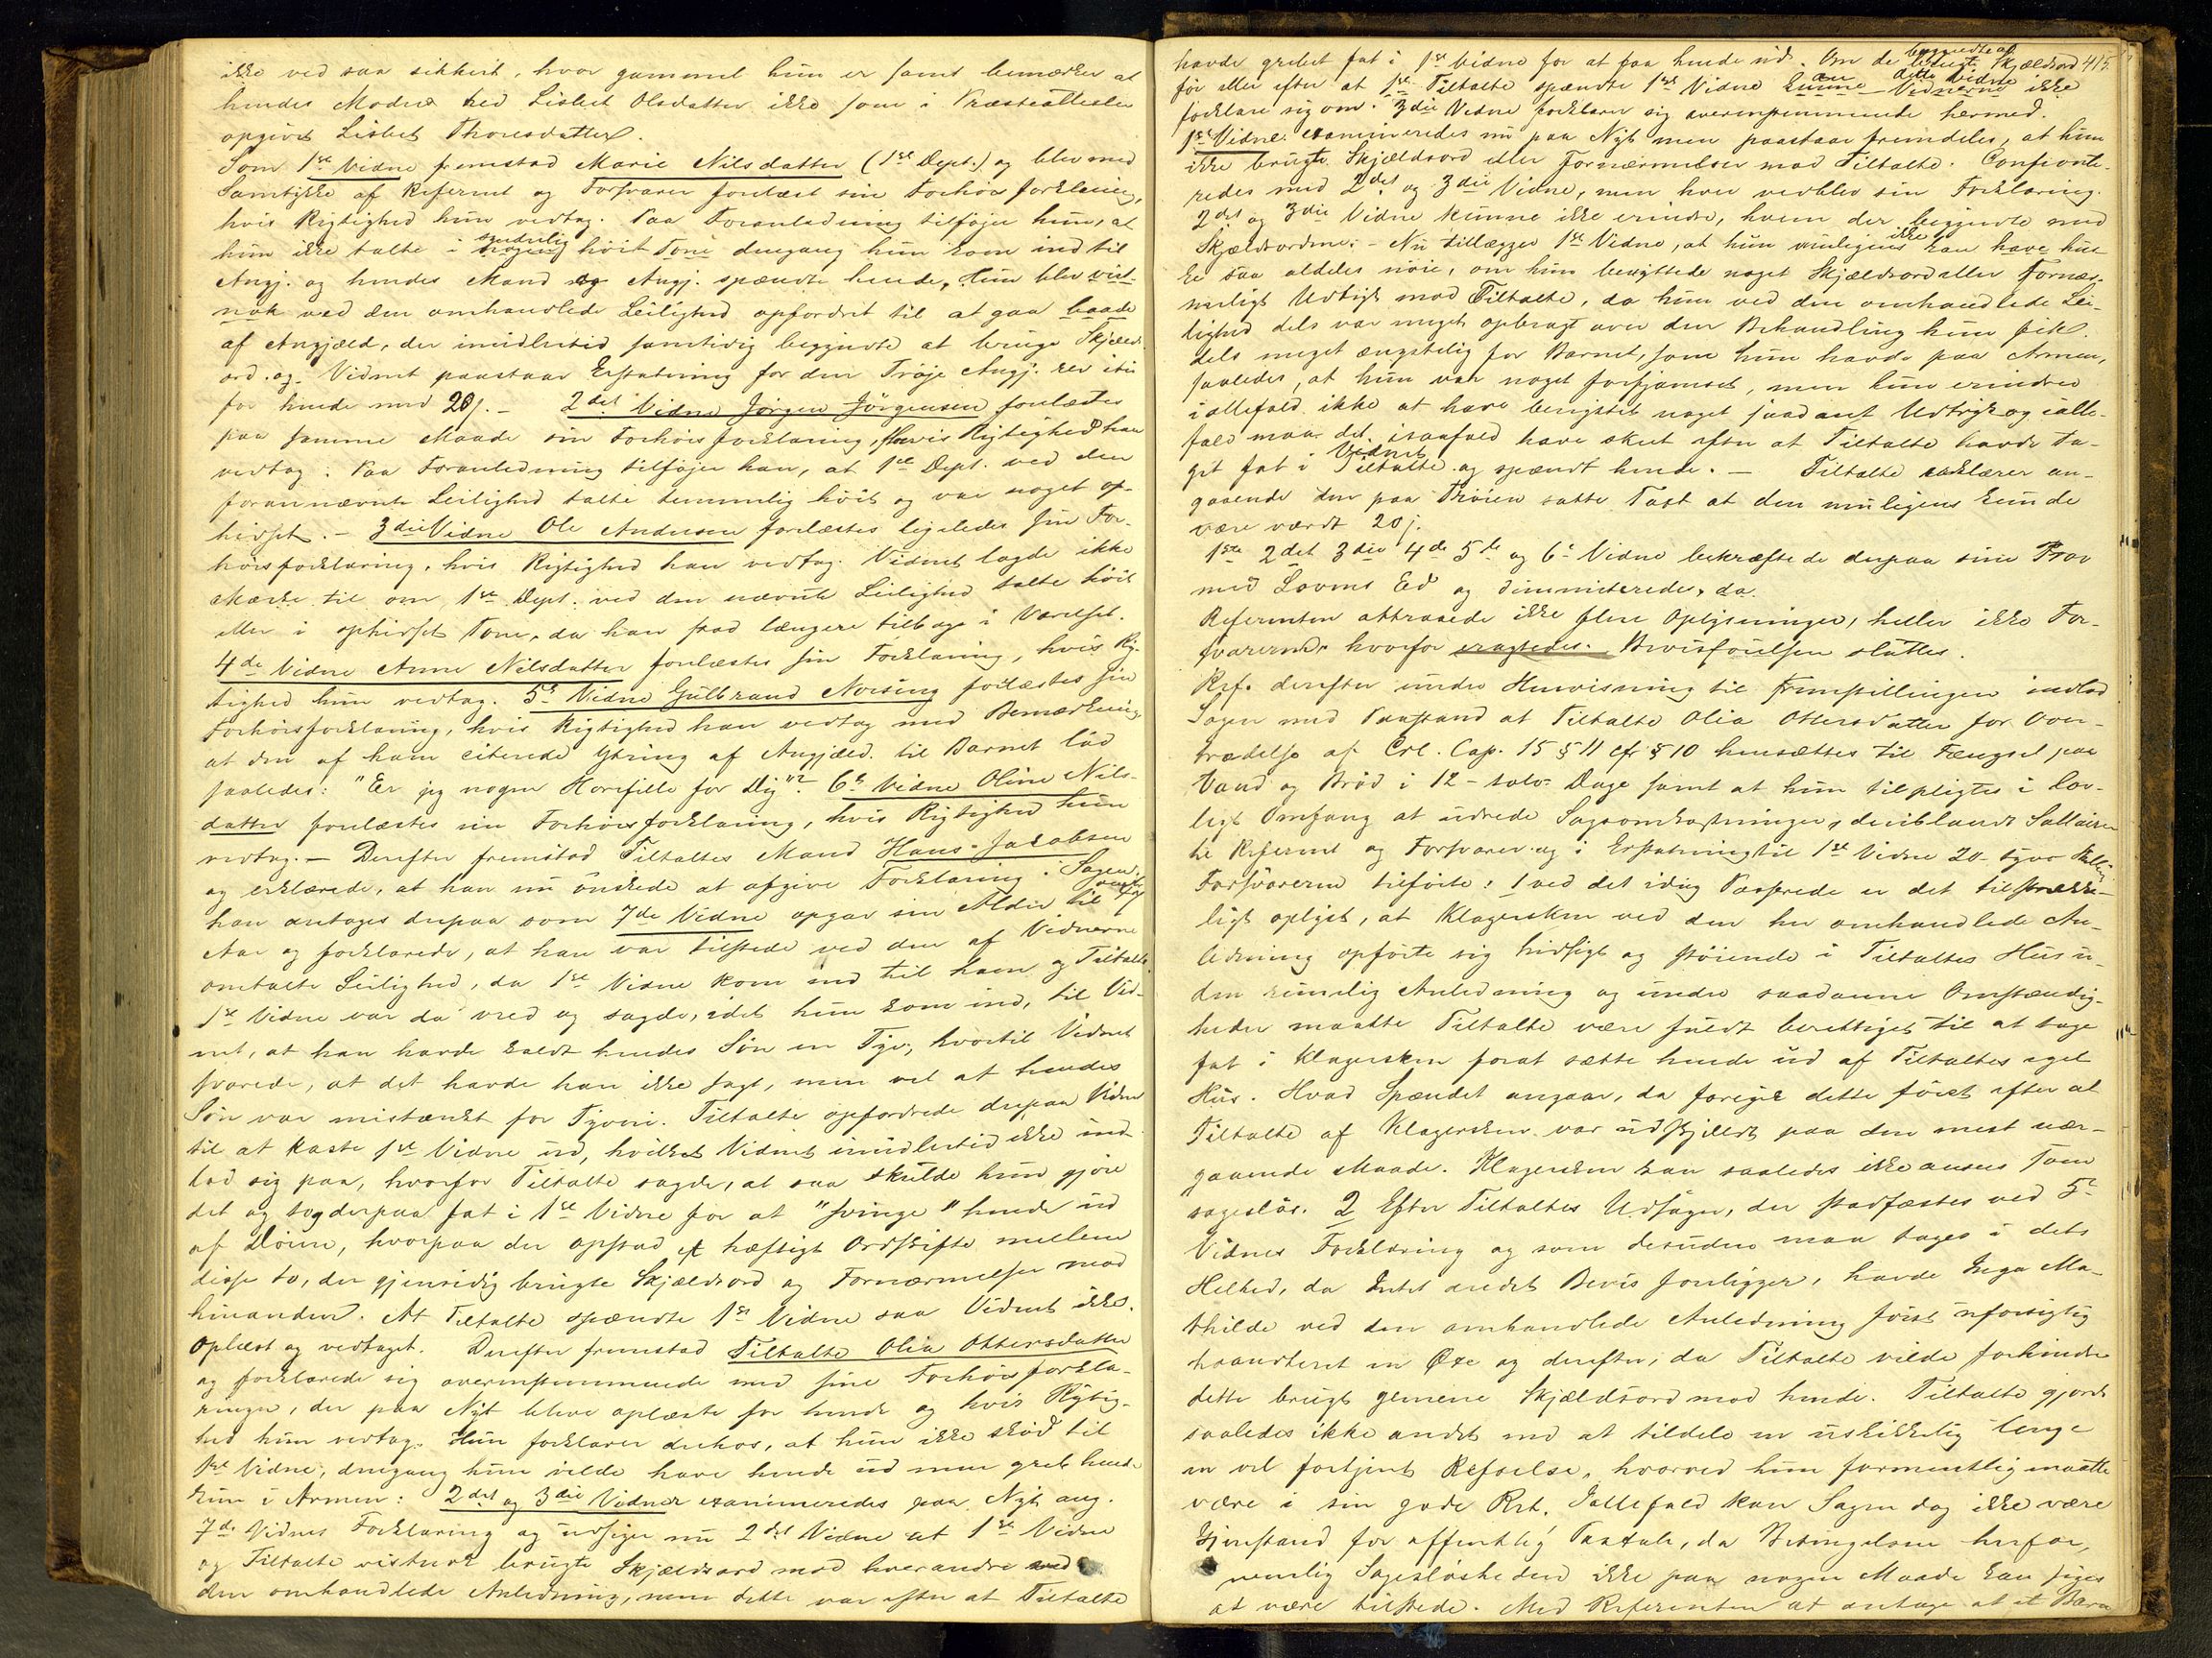 ikke ved saa sikkert, hvor gammel hun er samt bemærker at
hendes Moder hed Lisbet Olsdatter ikke som i Præsteattesten
opgivet Lisbet Thoresdatter.
Som 1ste Vidne fremstod Marie Nilsdatter (1ste Dept.) og blev med
Samtykke af Referent og Forsvarer forelæst sin Forhørsforklaring,
hvis Rigtighed hun vedtog. Paa Foranledning tilføjer hun, at
hun ikke talte i nogen synderlig høit Tone dengang hun kom ind til
Angj. og hendes Mand og Angj. spændte hende, Hun blev vist-
nok ved den omhandlede Leilighed opfordret til at gaa baade
af Angjæld., der imidlertid samtidig begyndte at bruge Skjælds-
ord og Vidnet paastaar Erstatning for den Trøje Angj. rev itu
for hende med 20 s. – 2det Vidne Jørgen Jørgensen forelæstes
paa samme Maade sin Forhørsforklaring, hvis Rigtighed han
vedtog. Paa Foranledning tilføjer han, at 1ste Dept. ved den
forannævnte Leilighed talte temmelig høit og var noget op-
hidset. – 3die Vidne Ole Andersen forelæstes ligeledes sin For-
hørsforklaring, hvis Rigtighed han vedtog. Vidnet lagde ikke
Mærke til om 1ste Dept. ved den nævnte Leilighed talte høit
eller i ophidset Tone, da han stod længere tilbage i Værelset.
4de Vidne Anne Nilsdatter forelæstes sin Forklaring, hvis Rig-
tighed hun vedtog. 5te Vidne Gulbrand Norsing forelæstes sin
Forhørsforklaring, hvis Rigtighed han vedtog med Bemærkning
at den af ham citerede Ytring af Angjæld. til Barnet lød
saaledes: "Er jeg nogen Horefille for Dig"? 6te Vidne Oline Nils-
datter forelæstes sin Forhørsforklaring, hvis Rigtighed hun
vedtog. – Derefter fremstod Tiltaltes Mand Hans Jakobsen
og erklærede, at han nu ønskede at afgive Forklaring i Sagen.
han antages derpaa som 7de Vidne opgav sin Alder til
Aar og forklarede, at han var tilstede ved den af Vidnerne
omtalte Leilighed, da 1ste Vidne kom ind til ham og Tiltalte.
1ste Vidne var da vred og sagde, idet hun kom ind, til Vid-
net, at han havde kaldt hendes Søn en Tyv, hvortil Vidnet
svarede, at det havde han ikke sagt, men vel at hendes
Søn var mistænkt for Tyveri. Tiltalte opfordrede derpaa Vidnet
til at kaste 1ste Vidne ud, hvilket Vidnet imidlertid ikke ind-
lod sig paa, hvorfor Tiltalte sagde, at saa skulde hun gjøre
det og tog derpaa fat i 1ste Vidne for at "svinge" hende ud
af Døren, hvorpaa der opstod et hæftigt Ordskifte mellem
disse to, der gjensidig brugte Skjældsord og Fornærmelser mod
hinanden. At Tiltalte spændte 1ste Vidne saa Vidnet ikke.
Oplæst og vedtaget. Derefter fremstod Tiltalte Olia Ottersdatter
og forklarede sig overensstemmende med sine Forhørsforkla-
ringer, der paa Nyt bleve oplæste for hende og hvis Rigtig-
hed hun vedtog. Hun forklarer derhos, at hun ikke skød til
1ste Vidne, dengang hun vilde have hende ud men greb hende
kun i Armen: 2det og 3die Vidner examineredes paa Nyt ang.
7de Vidnes Forklaring og udsiger nu 2det Vidne at 1ste Vidne
og Tiltalte vistnok brugte Skjældsord mod hverandre ved
den omhandlede Anledning, men dette var efter at Tiltalte
havde grebet fat i 1ste Vidne for at faa hende ud. Om de begyndte at bruge Skjældsord 415.
før eller efter at 1ste Tiltalte spændte 1ste Vidne kunne kan Vidnerne dette Vidne ikke
forklare sig om. 3die Vidne forklarer sig overensstemmende hermed.
1ste Vidne examineredes nu paa Nyt men paastaar fremdeles, at hun
ikke brugte Skjældsord eller Fornærmelser mod Tiltalte. Confronte-
redes med 2det og 3die Vidne, men hver vedblev sin Forklaring.
2det og 3die Vidne kunne ikke erindre, hvem der begyndte med
Skjældsordene. – Nu tillægger 1ste Vidne, at hun muligens ikke kan have hus-
ke saa aldeles nøie, om hun benyttede noget Skjældsord eller Fornær-
meligt Udtryk mod Tiltalte, da hun ved den omhandlede Lei-
lighed dels var meget opbragt over den Behandling hun fik,
dels meget ængstelig for Barnet, som hun havde paa Armen,
saaledes, at hun var noget forfjamset, men hun erindrer
iallefald ikke at have benyttet noget saadant Udtryk og ialle-
fald maa det isaafald have skeet efter at Tiltalte havde ta-
get fat i Tiltalte Vidnet og spændt hende. – Tiltalte erklærer an-
gaaende den paa Trøien satte Taxt at den muligens kunde
være værdt 20 s.
1ste 2det 3die 4de 5te og 6te Vidne bekræftede derpaa sine Prov
med Lovens Ed og dimmiteredes, da
Referenten attraaede ikke flere Oplysninger, heller ikke For-
svareren, hvorfor eragtedes. Bevisførelsen sluttes.
Ref. derefter under Henvisning til Fremstillingen indlod
Sagen med Paastand at Tiltalte Olia Ottersdatter for Over-
trædelse af Crl. Cap. 15 § 11 cfr § 10 hensættes til Fængsel paa
Vand og Brød i 12 – tolv – Dage samt at hun tilpligtes i lov-
ligt Omfang at udrede Sagsomkostninger, deriblandt Sallairer
til Referent og Forsvarer og i Erstatning til 1ste Vidne 20 – tyve Skilling
Forsvareren tilførte: 1 ved det idag Passerede er det tilstrække-
ligt oplyst, at Klagersken ved den her omhandlede An-
ledning opførte sig hidsigt og støiende i Tiltaltes Hus u-
den rimelig Anledning og under saadanne Omstændig-
heder maatte Tiltalte være fuldt berettiget til at tage
fat i Klagersken forat sætte hende ud af Tiltaltes eget
Hus. Hvad Spændet angaar, da foregik dette først efter at
Tiltalte af Klagersken var udskjældt paa den mest nær-
gaaende Maade. Klagersken kan saaledes ikke ansees som
sagesløs. 2 Efter Tiltaltes Udsagn, der stadfæstes ved 5te
Vidnes Forklaring og som desuden maa tages i dets
Helhed, da Intet andet Bevis foreligger, havde Inga Ma-
thilde ved den omhandlede Anledning først uforsigtig
haandteret en Øxe og derefter, da Tiltalte vilde forhindre
dette brugt gemene Skjældsord mod hende. Tiltalte gjorde
saaledes ikke andet end at tildele en uskikkelig Unge
en vel fortjent Refselse, hvorved hun formentlig maatte
være i sin gode Ret. Iallefald kan Sagen dog ikke være
Gjenstand for offentlig Paatale, da Betingelsen herfor,
nemlig Sagesløsheden ikke paa nogen Maade kan siges
at være tilstede. Med Referenten at antage at et Barn